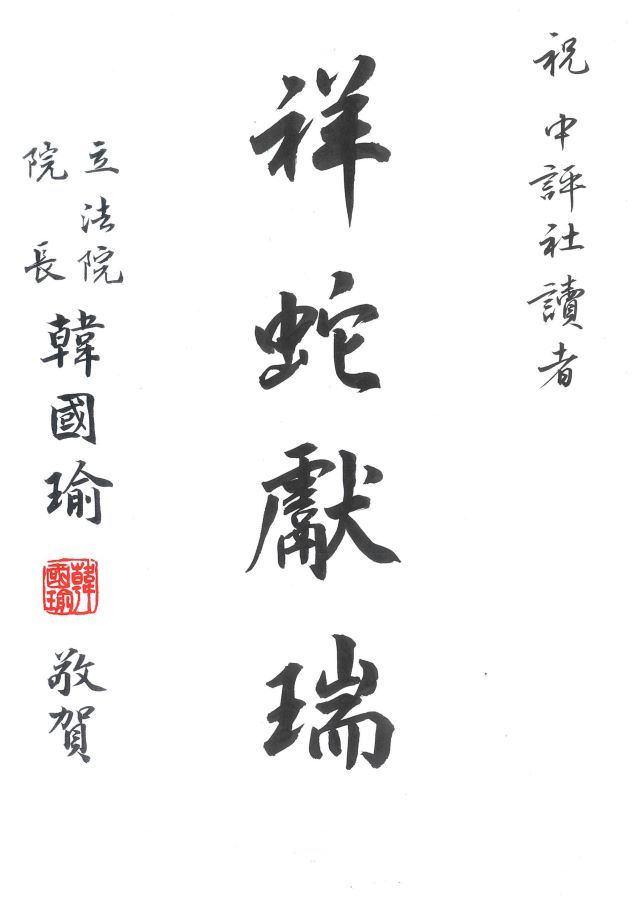 祝 中評社讀者
祥蛇獻瑞
立法院
院長
韓國瑜
韓國瑜
敬賀